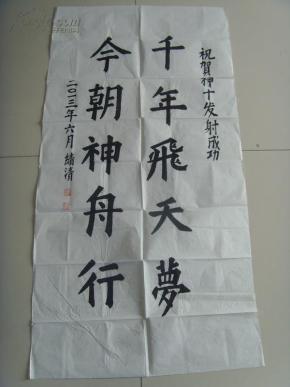 祝賀神十发射成功
千年飛天夢
今朝神舟行
二〇一三年六月 緒清